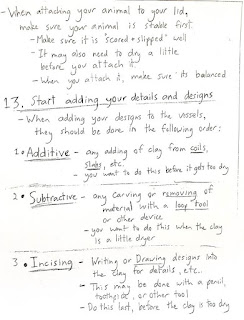 - When attaching your animal to your lid,
make sure your animal is stable first.
- Make sure it is "scored + slipped" well
- It may also need to dry a little
before you attach it.
- When you attach it, make sure its balanced
13. Start adding your details and designs
- When adding your designs to the vessels,
they should be done in the following order:
1. Additive - any adding of clay from coils,
slabs, etc.
- you want to do this before it gets too dry
2. Subtractive - any carving or removing of
material with a loop tool
or other device
- you want to do this when the clay
is a little dryer
3. Incising - Writing or Drawing designs into
the clay for details, etc..
- This may be done with a pencil,
toothpick, or other tool
- Do this last, before the clay is too dry